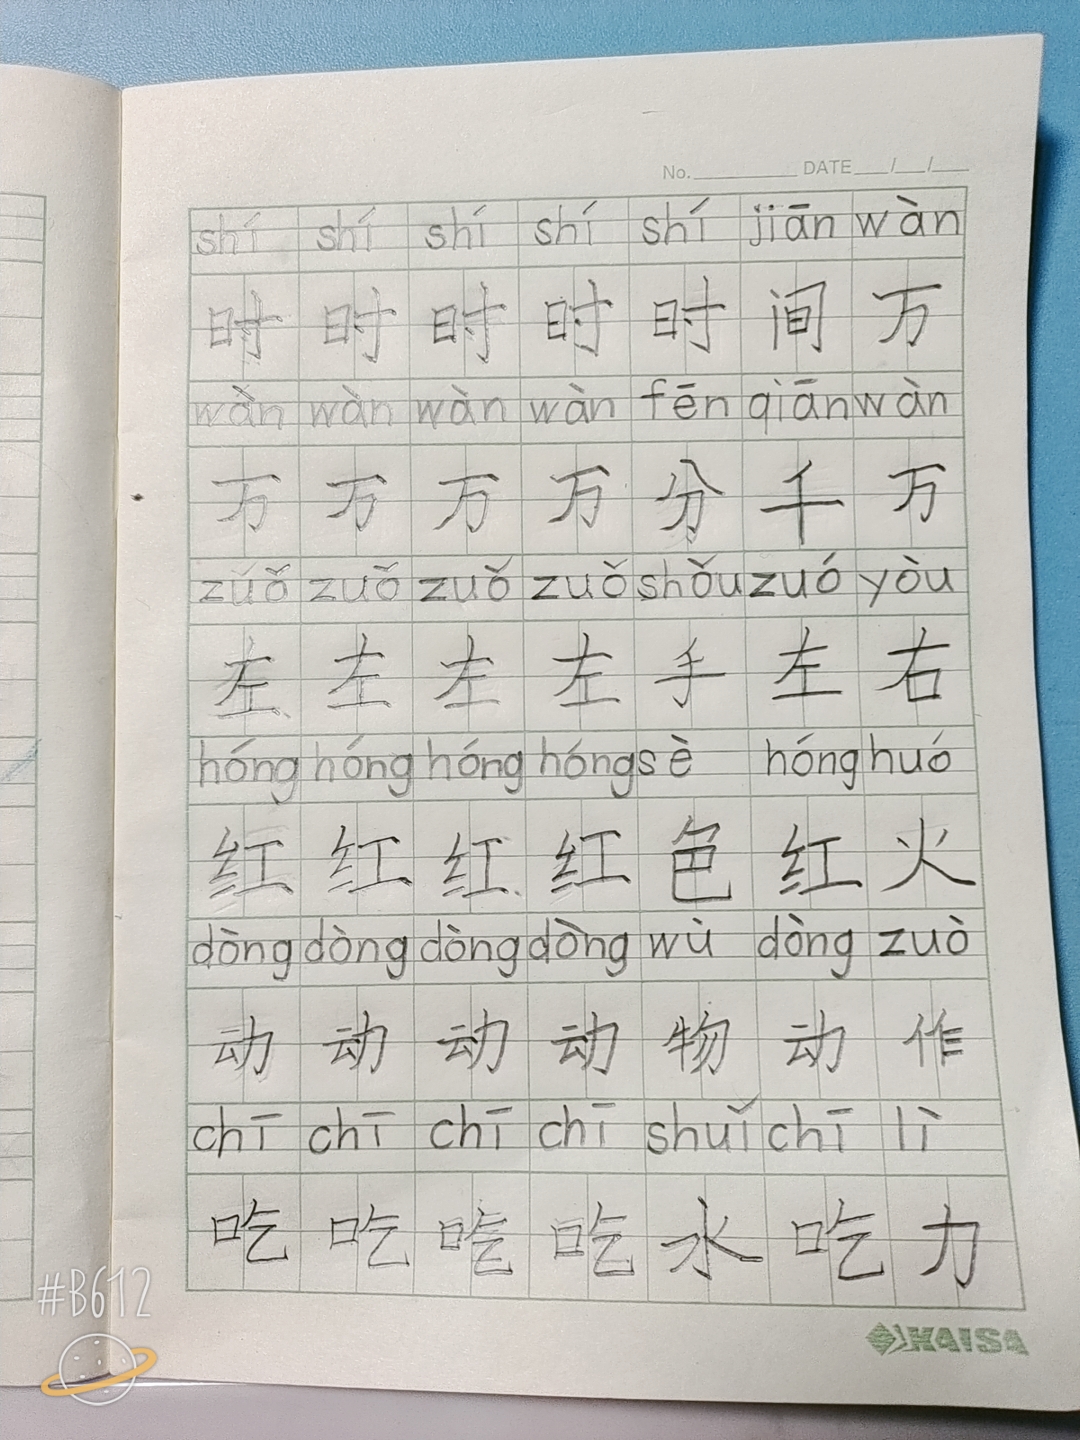 No. DATE / /
shí shí shí shí shí jiān wàn
时 时 时 时 时 间 万
wàn wàn wàn wàn fēn qiān wàn
万 万 万 万 分 千 万
zuǒ zuǒ zuǒ zuǒ shǒu zuó yòu
左 左 左 左 手 左 右
hóng hóng hóng hóng sè hóng huó
红 红 红 红 色 红 火
dòng dòng dòng dòng wù dòng zuò
动 动 动 动 物 动 作
chī chī chī chī shuǐ chī lì
吃 吃 吃 吃 水 吃 力
#B612
HAISA